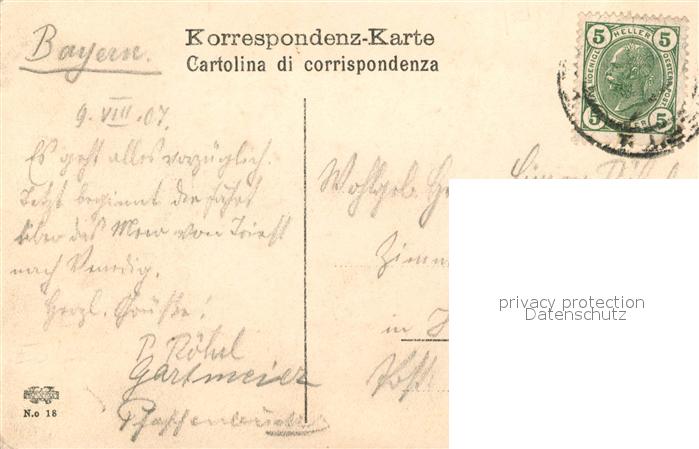 Bayern.
Korrespondenz-Karte
Cartolina di corrispondenza
5 HELLER 5
5 HELLER 5
9. VIII. 07.
Es geht alles vorzüglich
Jetzt beginnt die Fahrt
über das Meer von Triest
nach Venedig.
Herzl. Grüße!
P. Röhrl
Gartmeier
Wohlgeb. H
Zimm
in
Post
privacy protection
Datenschutz
N.o 18